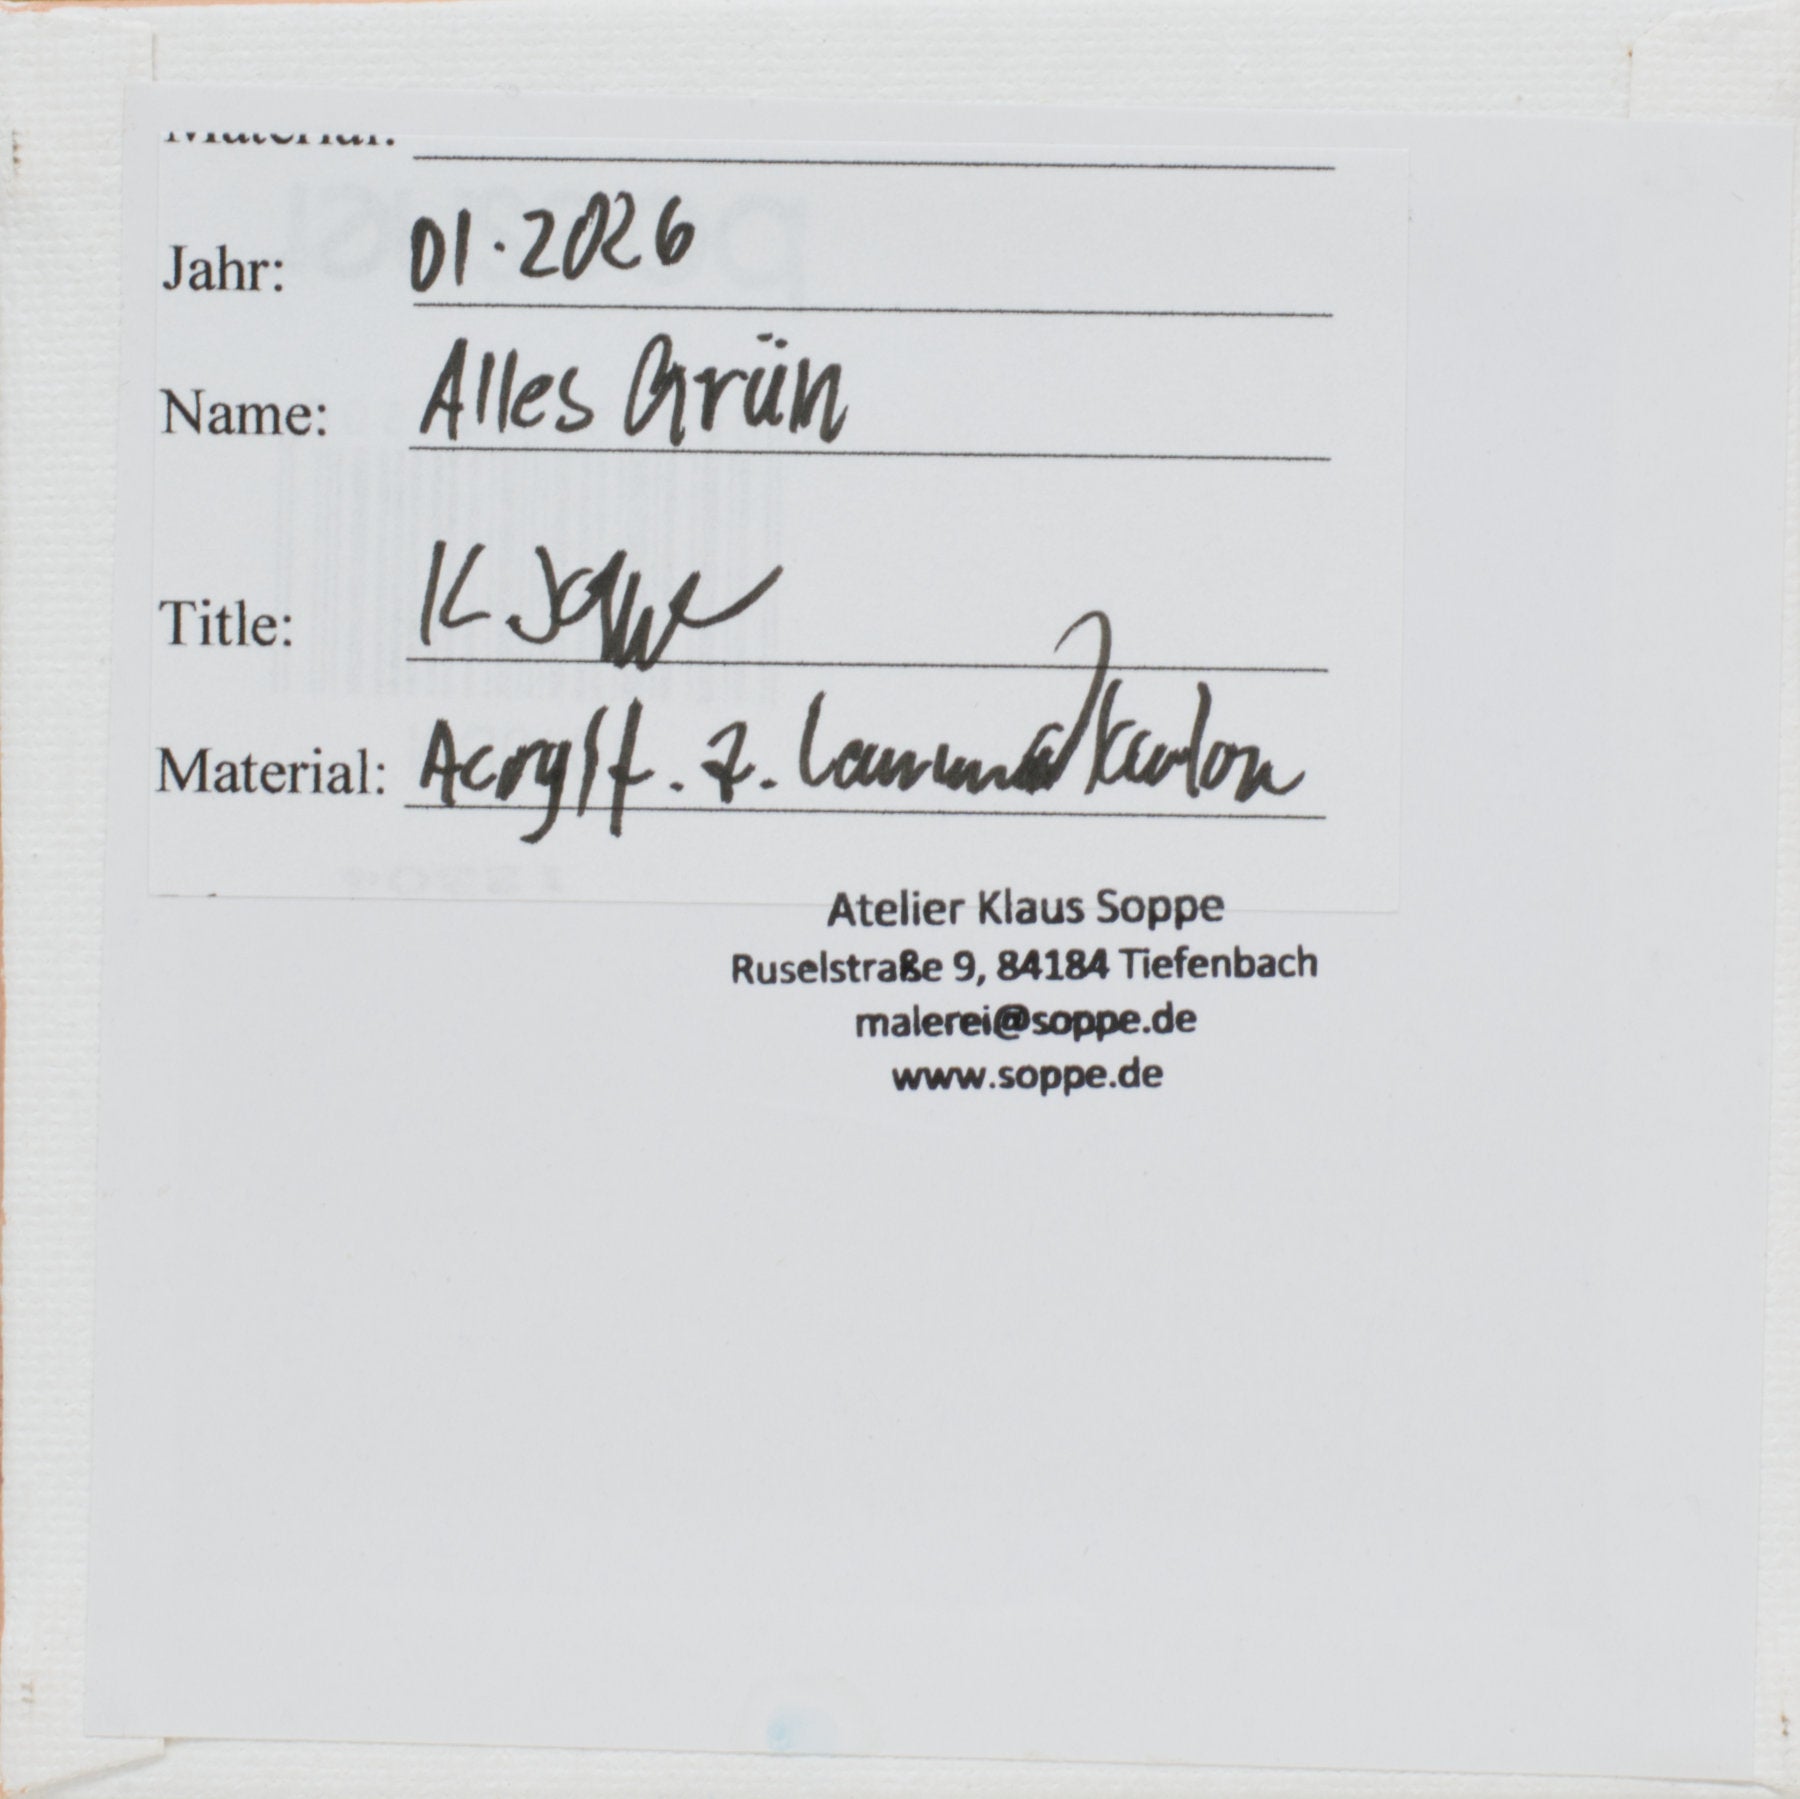 Material:
Jahr: 01.2026
Name: Alles Grün
Title: K Soppe
Material: Acryl f. z.
Atelier Klaus Soppe
Ruselstraße 9, 84184 Tiefenbach
malerei@soppe.de
www.soppe.de